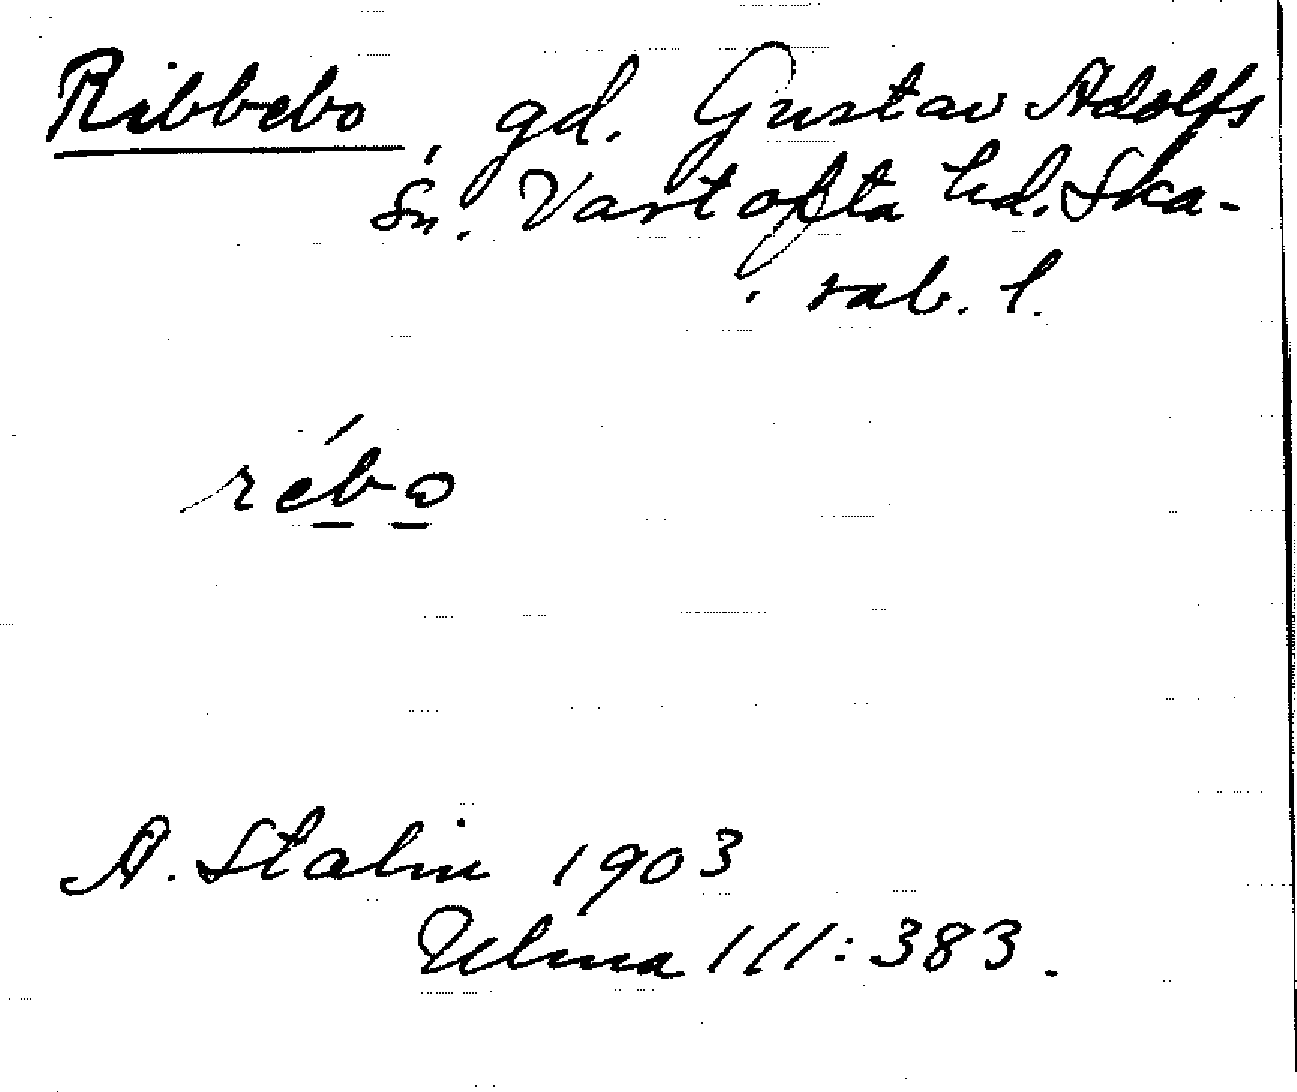 Ribbebo, gd. Gustav Adolfs
sn. Vartofta hd. Ska-
rab. l.
rébo
A. Stalin 1903
Ulma 111:383.